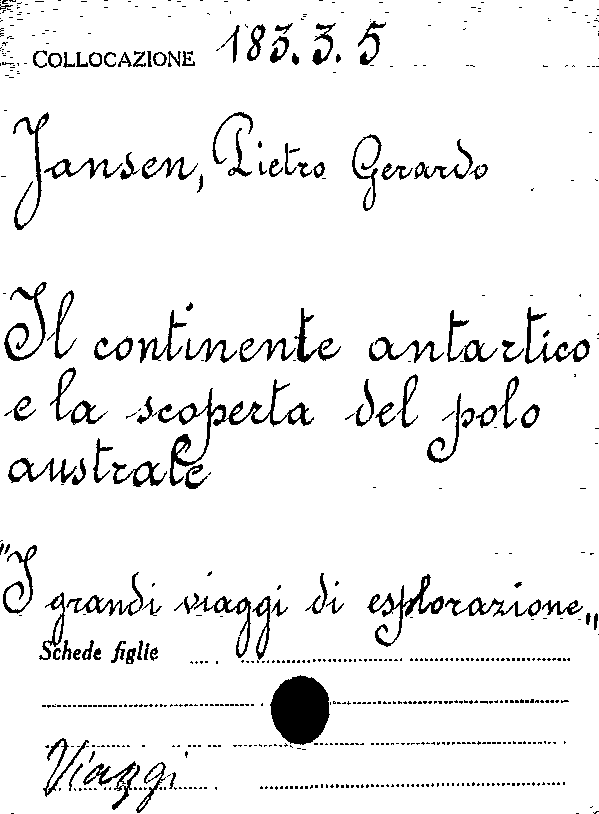 COLLOCAZIONE 183.3.5
Jansen, Pietro Gerardo
Il continente antartico
e la scoperta del polo
australe
"I grandi viaggi di esplorazione„
Schede figlie
Viaggi